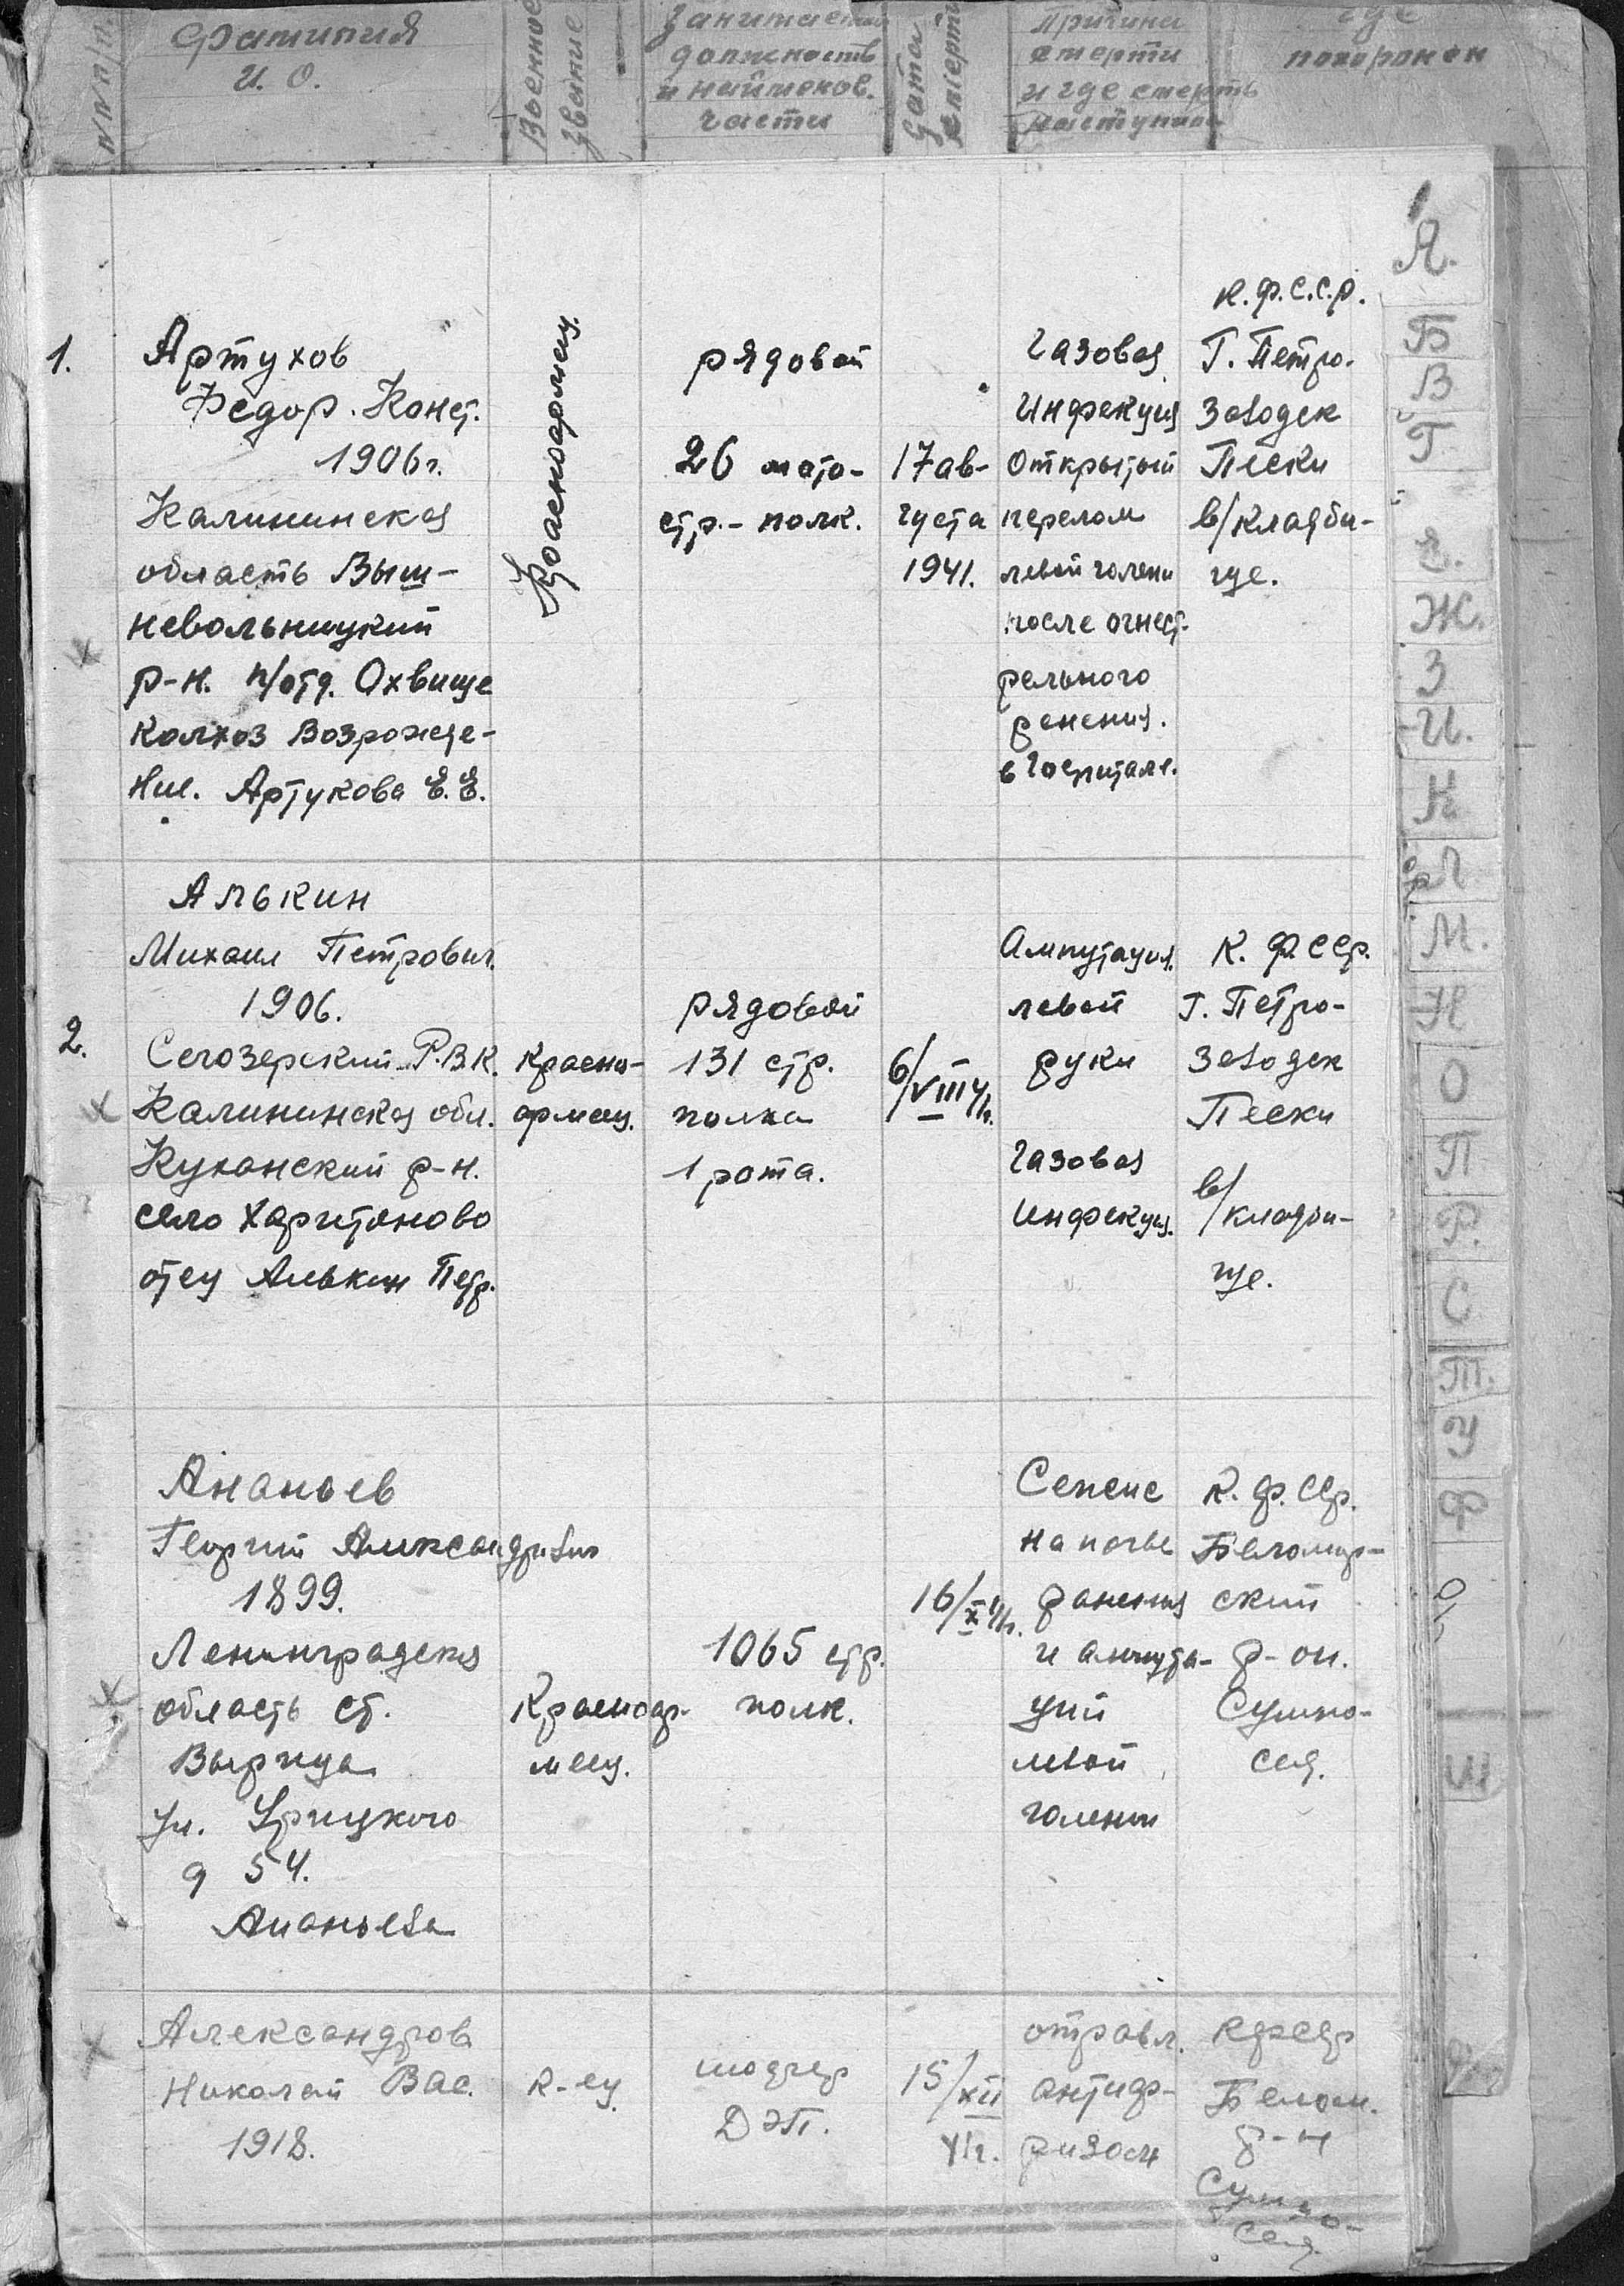 № п/п.
Фамилия
И. О.
Военное
звание
Занимаемая
должность
и наименов.
части
Дата
смерти
Причина
смерти
и где смерть
наступила
где
похоронен
1.
Артухов
Федор. Конст.
1906г.
Калининская
область Выш-
невольницкий
р-н. п/отд. Охвище
колхоз Возрожде-
ние. Артукова Е.Е.
Красноармеец.
рядовой
26 мото-
стр.- полк.
17 ав-
густа
1941.
Газовая
инфекция
Открытый
перелом
левой голени
после огнест-
рельного
ранения.
в госпитале.
К.Ф.С.С.Р.
Г. Петро-
заводск
Пески
в/кладби-
ще.
2.
Алькин
Михаил Петрович.
1906.
Сегозерский Р.В.К.
Калининская обл.
Куханский р-н.
село Харитоново
отец Алькин Петр.
Красно-
армеец.
рядовой
131 стр.
полка
1 рота.
6/VIII 41г.
Ампутация.
левой
руки
Газовая
инфекция.
К. Ф ССР.
Г. Петро-
заводск
Пески
в/кладби-
ще.
Ананьев
Георгий Александрович
1899.
Ленинградская
область ст.
Вырица
ул. Урицкого
д 54.
Ананьева
Красноар-
меец.
1065 стр.
полк.
16/X 41г.
Сепсис
на почве
ранения
и ампута-
ций
левой
голени
К. Ф. ССР.
Беломор-
ский
р-он.
Сумпо-
сад.
Александров
Николай Вас.
1918.
к-ец.
шофер
ДЭП.
15/XII
41г.
отравл.
антиф-
ризом
КФССР
Белом.
р-н
Сумпо-
сад.
А.
Б
В
Г
Е.
Ж.
З
И.
К
Л
М.
Н
О
П
Р.
С
Т.
У
Ф
Ш